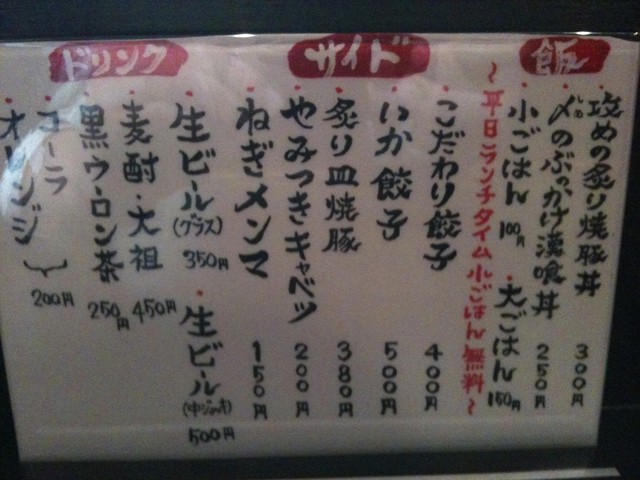 飯
攻めの炙り焼豚丼 300円
〆のぶっかけ漢喰丼 250円
小ごはん 100円 ・大ごはん 150円
〜平日ランチタイム小ごはん無料〜
サイド
こだわり餃子 400円
いか餃子 500円
炙り皿焼豚 380円
やみつきキャベツ 200円
ねぎメンマ 150円
ドリンク
生ビール(グラス) 350円
生ビール(中ジョッキ) 500円
麦酎・大祖 450円
黒ウーロン茶 250円
コーラ
オレンジ
200円